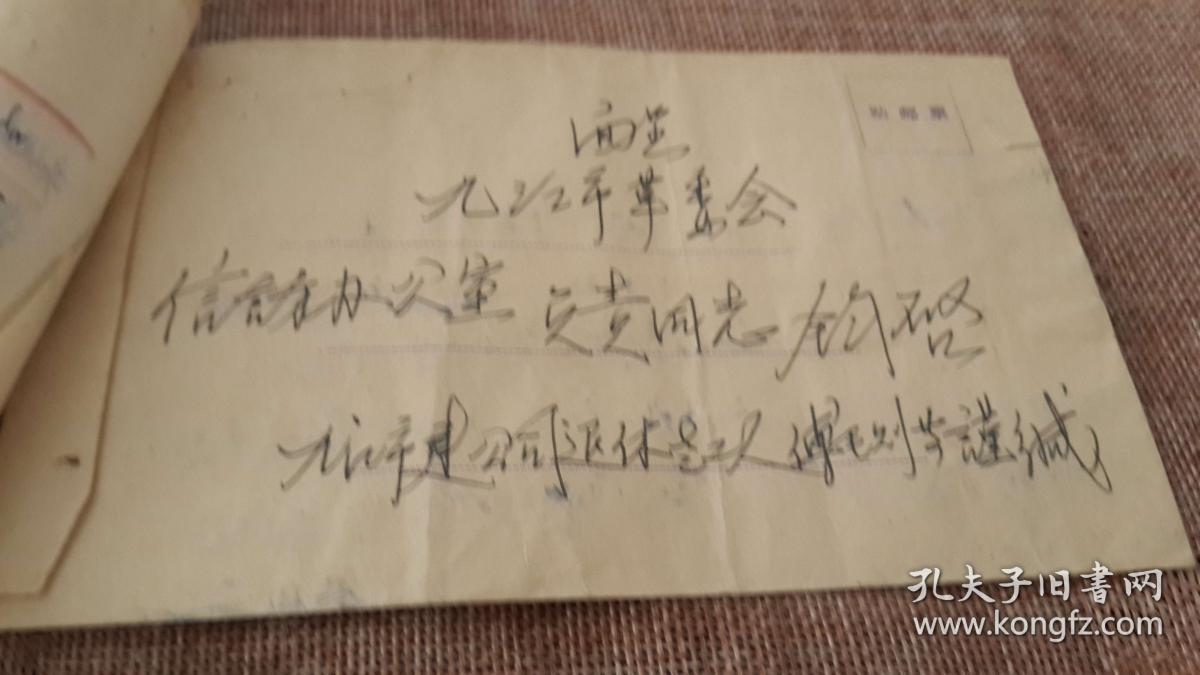 贴邮票
面呈
九江市革委会
信访办公室 负责同志 钧启
九江市建公司退休老工人 谨缄
孔夫子旧书网
www.kongfz.com